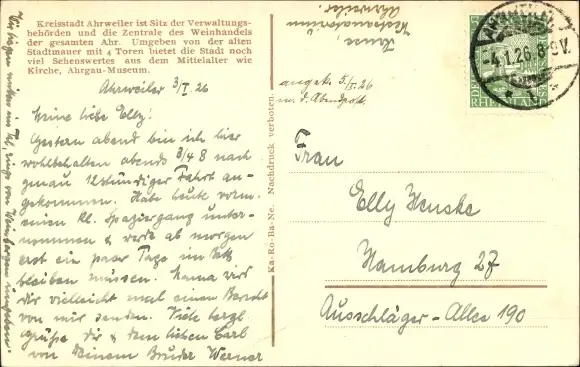 Kreisstadt Ahrweiler ist Sitz der Verwaltungs-
behörden und die Zentrale des Weinhandels
der gesamten Ahr. Umgeben von der alten
Stadtmauer mit 4 Toren bietet die Stadt noch
viel Sehenswertes aus dem Mittelalter wie
Kirche, Ahrgau-Museum.
Ahrweiler 3/I. 26
Meine liebe Elly!
Gestern abend bin ich hier
wohlbehalten abends 3/4 8 nach
genau 12stündiger Fahrt an-
gekommen. Habe heute vorm.
einen kl. Spaziergang unter-
nommen & werde ab morgen
erst ein paar Tage im Bett
bleiben müssen. Mama wird
dir vielleicht mal einen Bericht
von mir senden. Viele herzl.
Grüße dir & dem lieben Carl
von Deinem Bruder Werner
Wir liegen mitten im Tal, rings von Weinbergen umgeben.
Ka-Ro-Ba-Ne. Nachdruck verboten.
Ahrweiler.
angek. 5./I. 26
m. d. Abendpost
-4.1.26.8-9V.
Frau
Elly Henske
Hamburg 27
Ausschläger-Allee 190